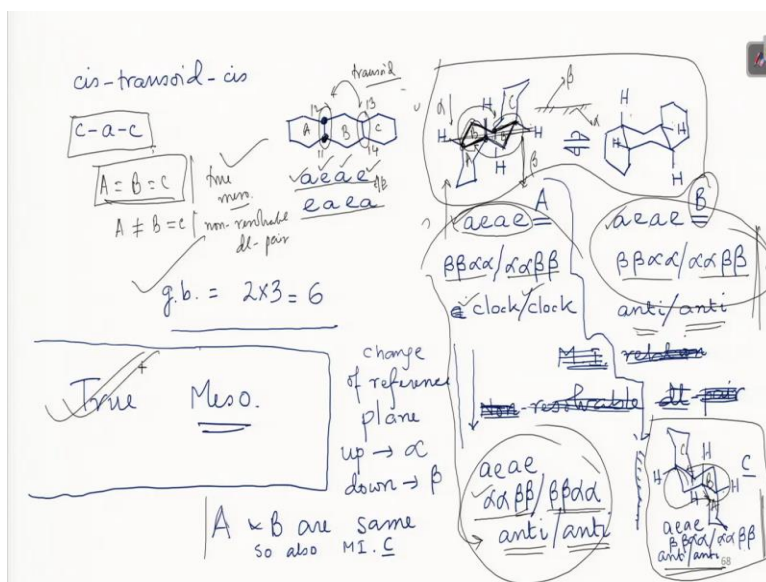 cis-transoid-cis
c-a-c
A = B = C
true meso.
A ≠ B = C
non-resolvable dl-pair
g.b. = 2×3 = 6
True Meso.
transoid
12 13
A B C
11 14
aeae
eaea
change
of reference
plane
up → α
down → β
A & B are same
so also MI. C
α H C H β
H A B H
H β α
H H H H
aeae A
ββαα/ααββ
clock/clock
aeae B
ββαα/ααββ
anti/anti
M.I. relation
Non-resolvable dl-pair
aeae
ααββ/ββαα
anti/anti
C H C
H B H
H A
aeae
ββαα/ααββ
anti/anti
68